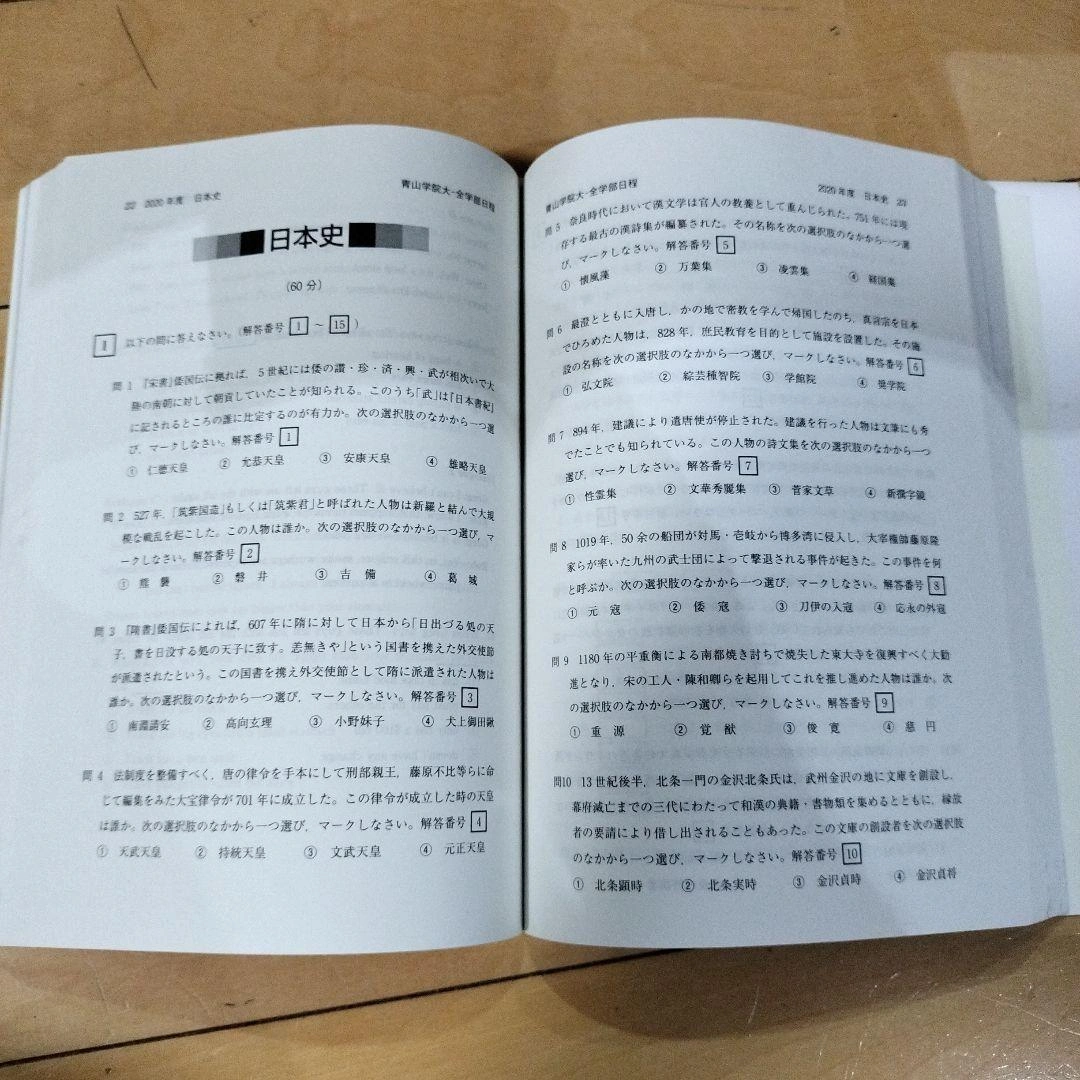 22 2020年度 日本史
青山学院大-全学部日程
日本史
(60分)
Ⅰ 以下の問に答えなさい。(解答番号 1 ～ 15 )
問1 『宋書』倭国伝に拠れば，5世紀には倭の讃・珍・済・興・武が相次いで大
陸の南朝に対して朝貢していたことが知られる。このうち「武」は『日本書紀』
に記されるところの誰に比定するのが有力か。次の選択肢のなかから一つ選
び，マークしなさい。解答番号 1
① 仁徳天皇 ② 允恭天皇 ③ 安康天皇 ④ 雄略天皇
問2 527年，「筑紫国造」もしくは「筑紫君」と呼ばれた人物は新羅と結んで大規
模な戦乱を起こした。この人物は誰か。次の選択肢のなかから一つ選び，マ
ークしなさい。解答番号 2
① 熊襲 ② 磐井 ③ 吉備 ④ 葛城
問3 『隋書』倭国伝によれば，607年に隋に対して日本から「日出づる処の天
子，書を日没する処の天子に致す。恙無きや」という国書を携えた外交使節
が派遣されたという。この国書を携え外交使節として隋に派遣された人物は
誰か。次の選択肢のなかから一つ選び，マークしなさい。解答番号 3
① 南淵請安 ② 高向玄理 ③ 小野妹子 ④ 犬上御田鍬
問4 法制度を整備すべく，唐の律令を手本にして刑部親王，藤原不比等らに命
じて編集をみた大宝律令が701年に成立した。この律令が成立した時の天皇
は誰か。次の選択肢のなかから一つ選び，マークしなさい。解答番号 4
① 天武天皇 ② 持統天皇 ③ 文武天皇 ④ 元正天皇
青山学院大-全学部日程
2020年度 日本史 23
問5 奈良時代において漢文学は官人の教養として重んじられた。751年には現
存する最古の漢詩集が編纂された。その名称を次の選択肢のなかから一つ選
び，マークしなさい。解答番号 5
① 懐風藻 ② 万葉集 ③ 凌雲集 ④ 経国集
問6 最澄とともに入唐し，かの地で密教を学んで帰国したのち，真言宗を日本
でひろめた人物は，828年，庶民教育を目的として施設を設置した。その施
設の名称を次の選択肢のなかから一つ選び，マークしなさい。解答番号 6
① 弘文院 ② 綜芸種智院 ③ 学館院 ④ 奨学院
問7 894年，建議により遣唐使が停止された。建議を行った人物は文筆にも秀
でたことでも知られている。この人物の詩文集を次の選択肢のなかから一つ
選び，マークしなさい。解答番号 7
① 性霊集 ② 文華秀麗集 ③ 菅家文草 ④ 新撰字鏡
問8 1019年，50余の船団が対馬・壱岐から博多湾に侵入し，大宰権帥藤原隆
家らが率いた九州の武士団によって撃退される事件が起きた。この事件を何
と呼ぶか。次の選択肢のなかから一つ選び，マークしなさい。解答番号 8
① 元寇 ② 倭寇 ③ 刀伊の入寇 ④ 応永の外寇
問9 1180年の平重衡による南都焼き討ちで焼失した東大寺を復興すべく大勧
進となり，宋の工人・陳和卿らを起用してこれを推し進めた人物は誰か。次
の選択肢のなかから一つ選び，マークしなさい。解答番号 9
① 重源 ② 覚猷 ③ 俊寛 ④ 慈円
問10 13世紀後半，北条一門の金沢北条氏は，武州金沢の地に文庫を創設し，
幕府滅亡までの三代にわたって和漢の典籍・書物類を集めるとともに，縁故
者の要請により借し出されることもあった。この文庫の創設者を次の選択肢
のなかから一つ選び，マークしなさい。解答番号 10
① 北条顕時 ② 北条実時 ③ 金沢貞時 ④ 金沢貞将